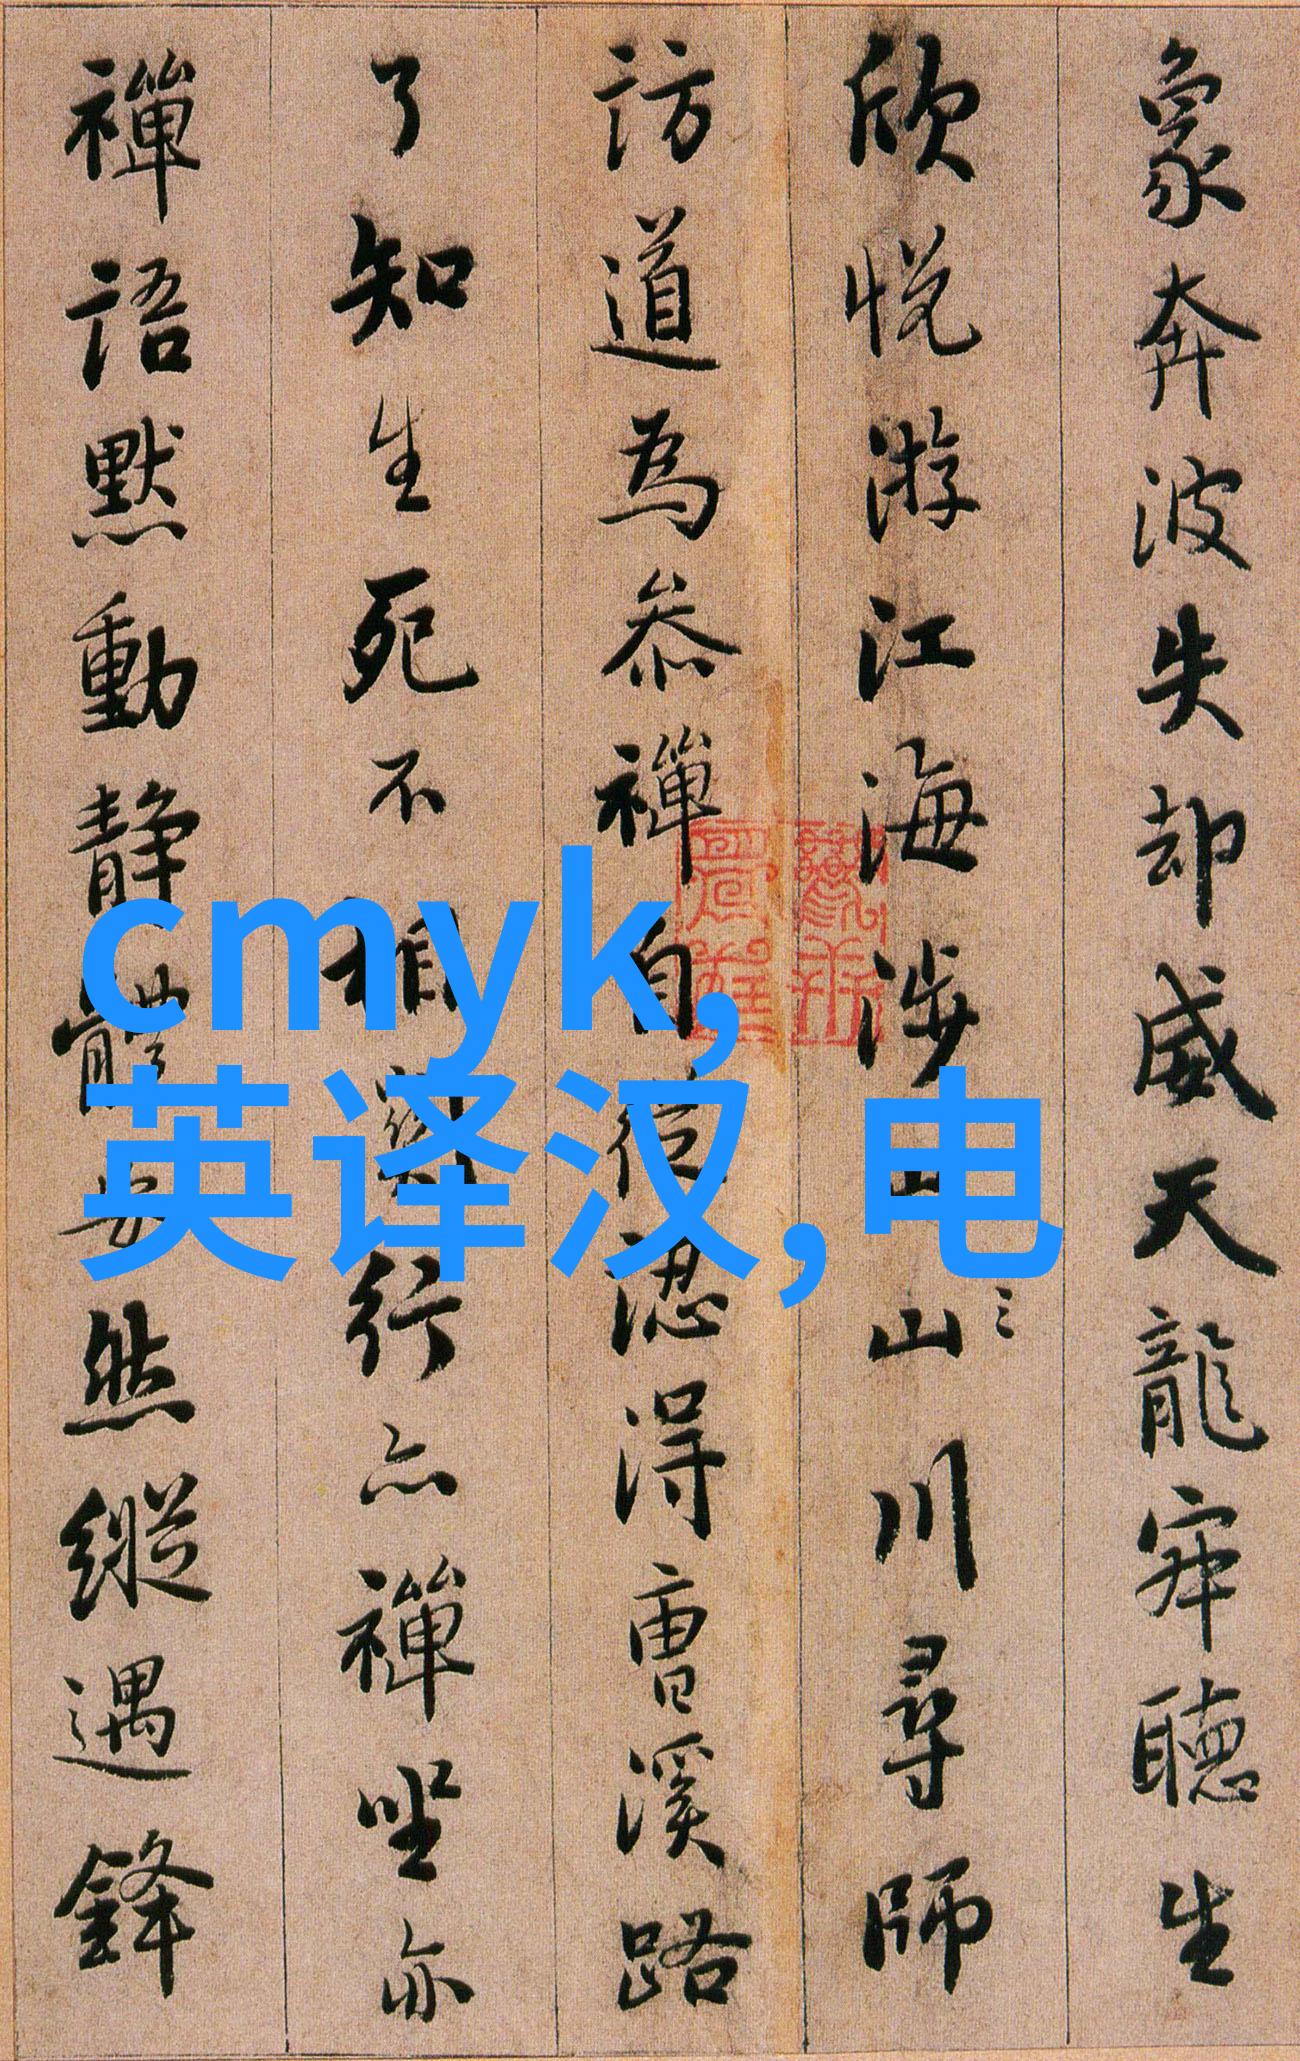 象奔波失却威天龍寂聽生
欣悦游江海涉山川尋師
訪道為叅禪自從認得曹溪路
了知生死不相關行亦禪坐亦
禪語默動静體安然縱遇鋒
cmyk,
英译汉,电